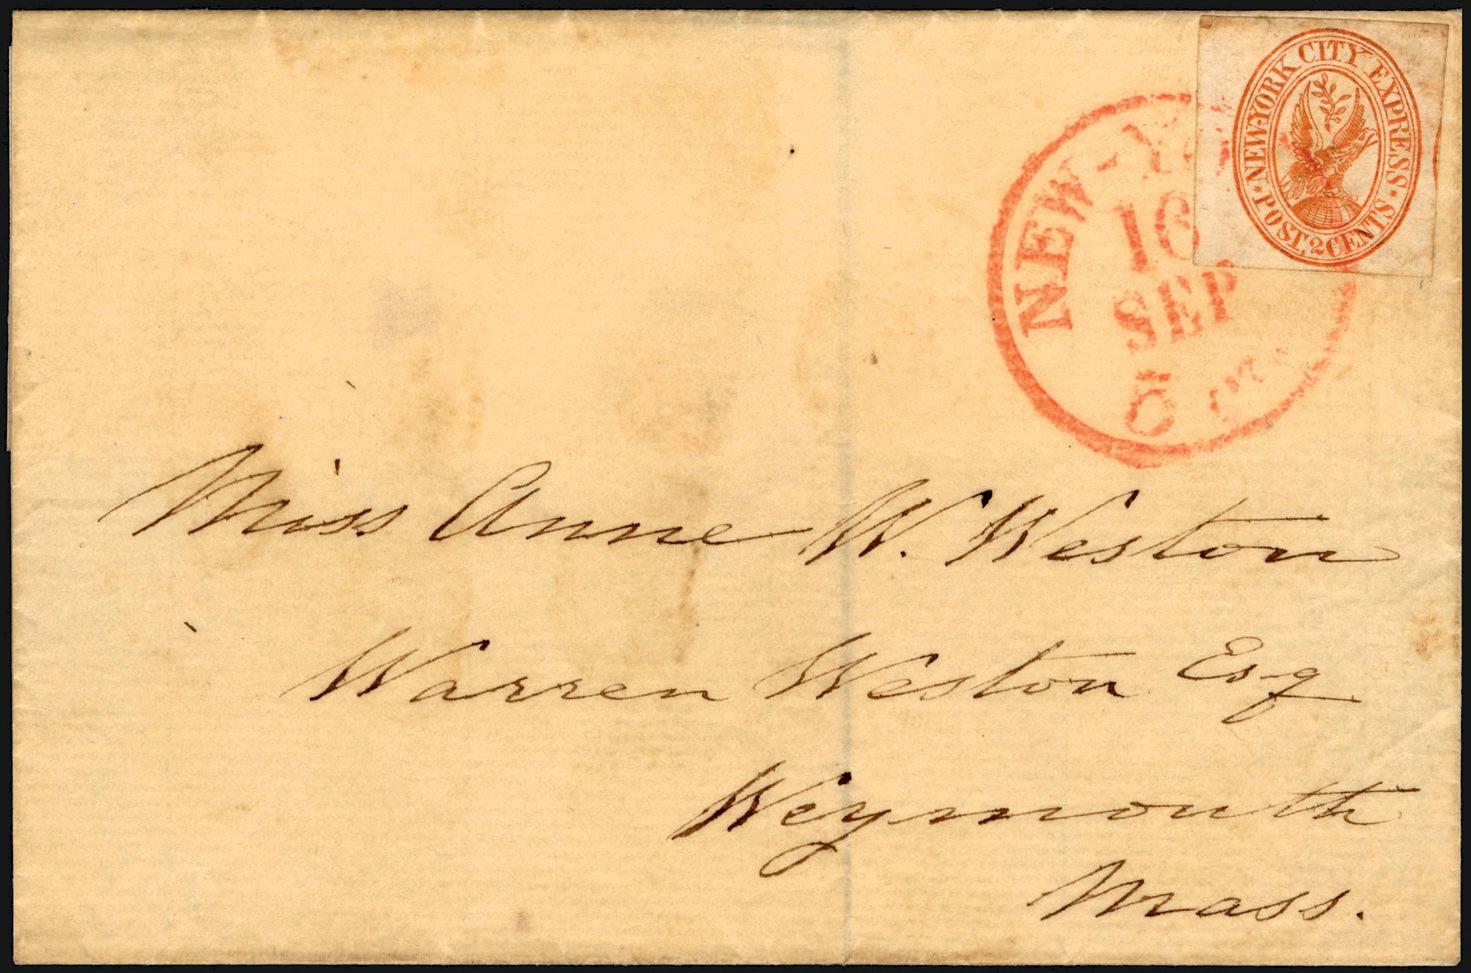 NEW-YORK CITY EXPRESS
POST, 2 CENTS
NEW-YO
16
SEP
5 cts
Miss Anne W. Weston
Warren Weston Esq
Weymouth
Mass.